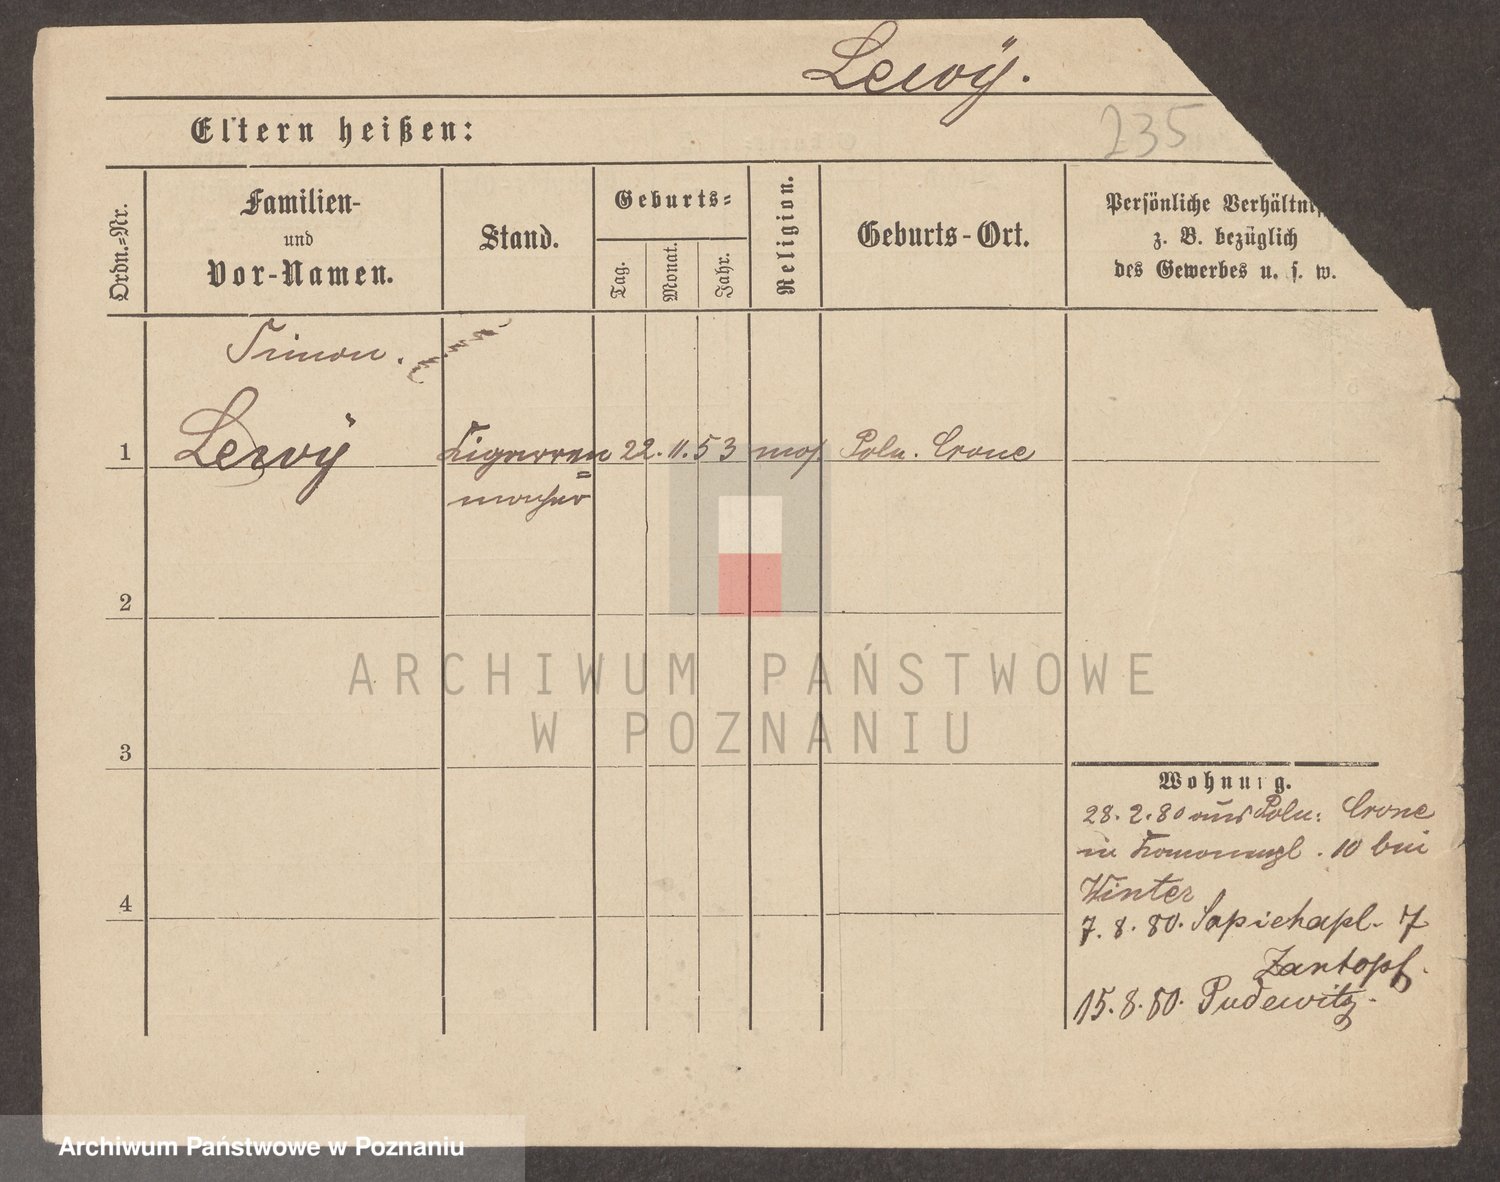 Lewÿ.
235
Eltern heißen:
Ordn.=Nr.
Familien-
und
Vor-Namen.
Stand.
Geburts=
Tag.
Monat.
Jahr.
Religion.
Geburts-Ort.
Persönliche Verhältni
z. B. bezüglich
des Gewerbes u. s. w.
Simon.
1 Lewÿ Cigarren 22. 11. 53 mos. Poln. Crone
=
macher
2
3
4
Wohnung.
28. 2. 80 aus Poln: Crone
in 10 bei
Winter
7. 8. 80. Sapiehapl. 7
Zantopf.
15. 8. 80. Pudewitz.
ARCHIWUM PAŃSTWOWE
W POZNANIU
Archiwum Państwowe w Poznaniu